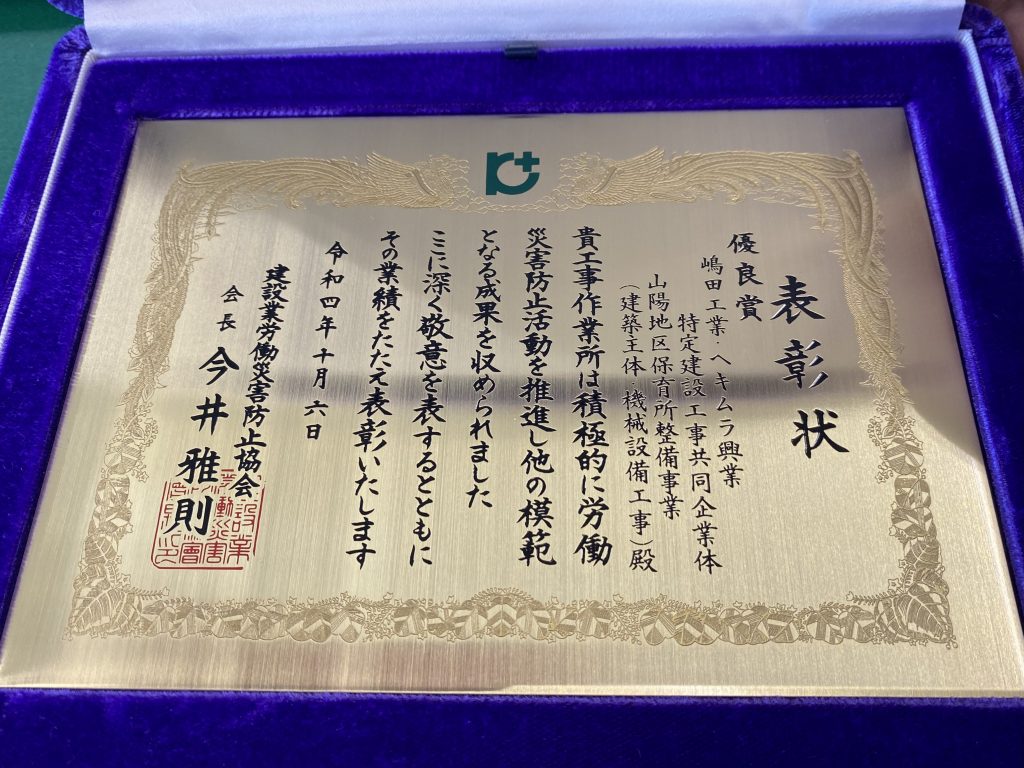 表彰状
優良賞
嶋田工業・ヘキムラ興業
特定建設工事共同企業体
山陽地区保育所整備事業
(建築主体・機械設備工事)殿
貴工事作業所は積極的に労働
災害防止活動を推進し他の模範
となる成果を収められました
ここに深く敬意を表するとともに
その業績をたたえ表彰いたします
令和四年十月六日
建設業労働災害防止協会
会長 今井雅則